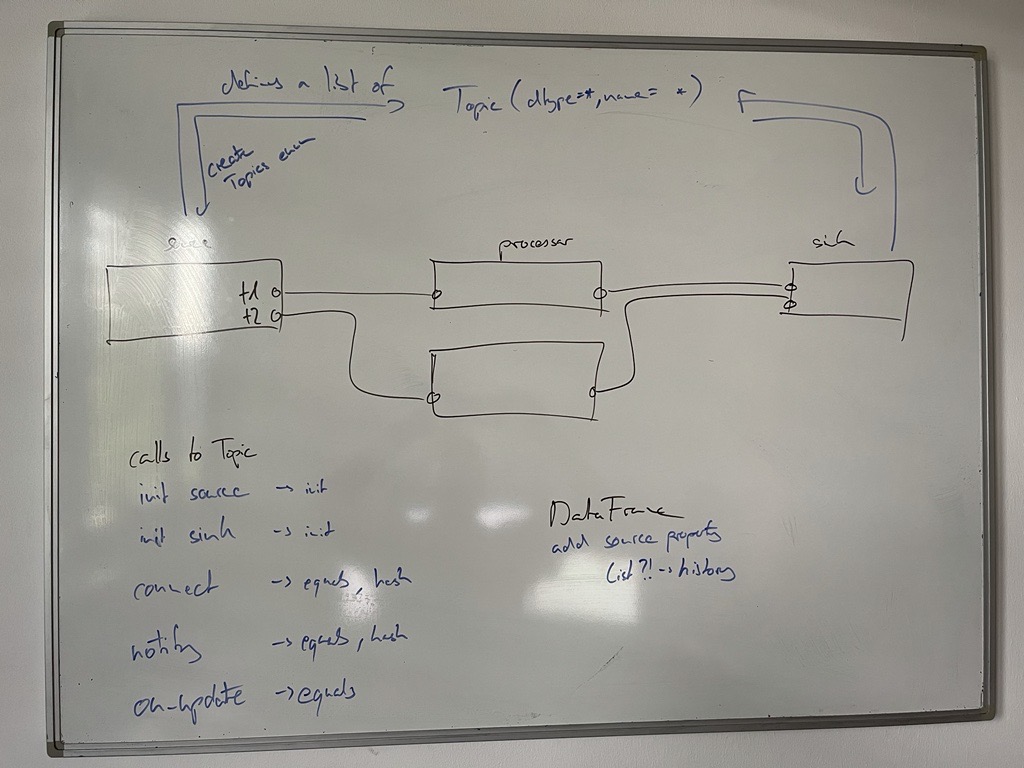 defines a list of
Topic (dtype=*, name= *)
create
Topics enum
source
processor
sink
t1
t2
calls to Topic
init source -> init
init sink -> init
connect -> equals, hash
notify -> equals, hash
on-update -> equals
DataFrame
add source property
list ?! -> history